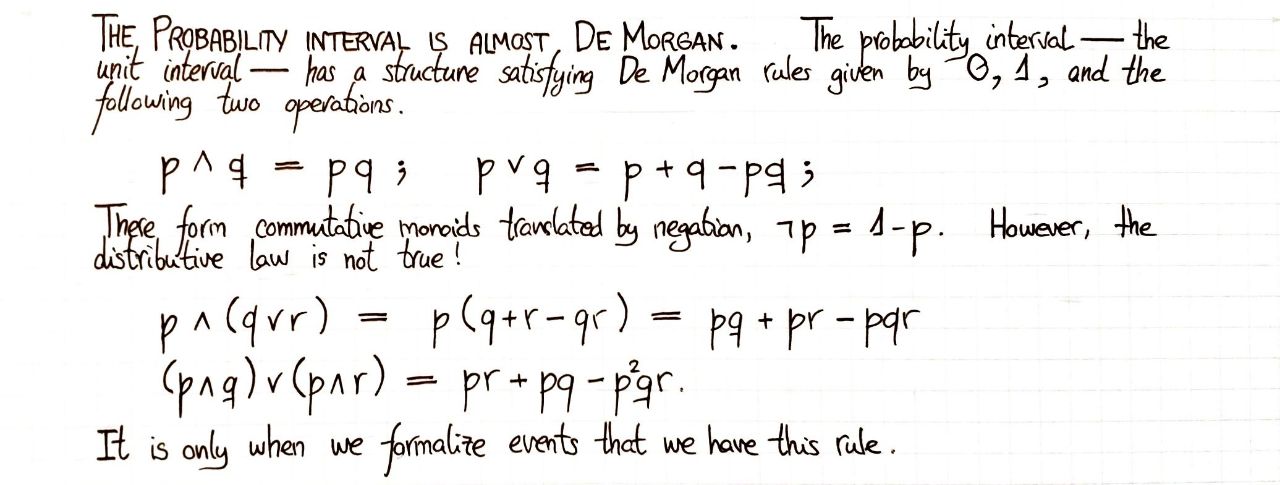 THE PROBABILITY INTERVAL IS ALMOST DE MORGAN. The probability interval — the
unit interval — has a structure satisfying De Morgan rules given by 0, 1, and the
following two operations.
p ∧ q = pq ; p ∨ q = p + q - pq ;
These form commutative monoids translated by negation, ¬p = 1-p. However, the
distributive law is not true!
p ∧ (q ∨ r) = p(q+r-qr) = pq + pr - pqr
(p∧q) ∨ (p∧r) = pr + pq - p²qr.
It is only when we formalize events that we have this rule.